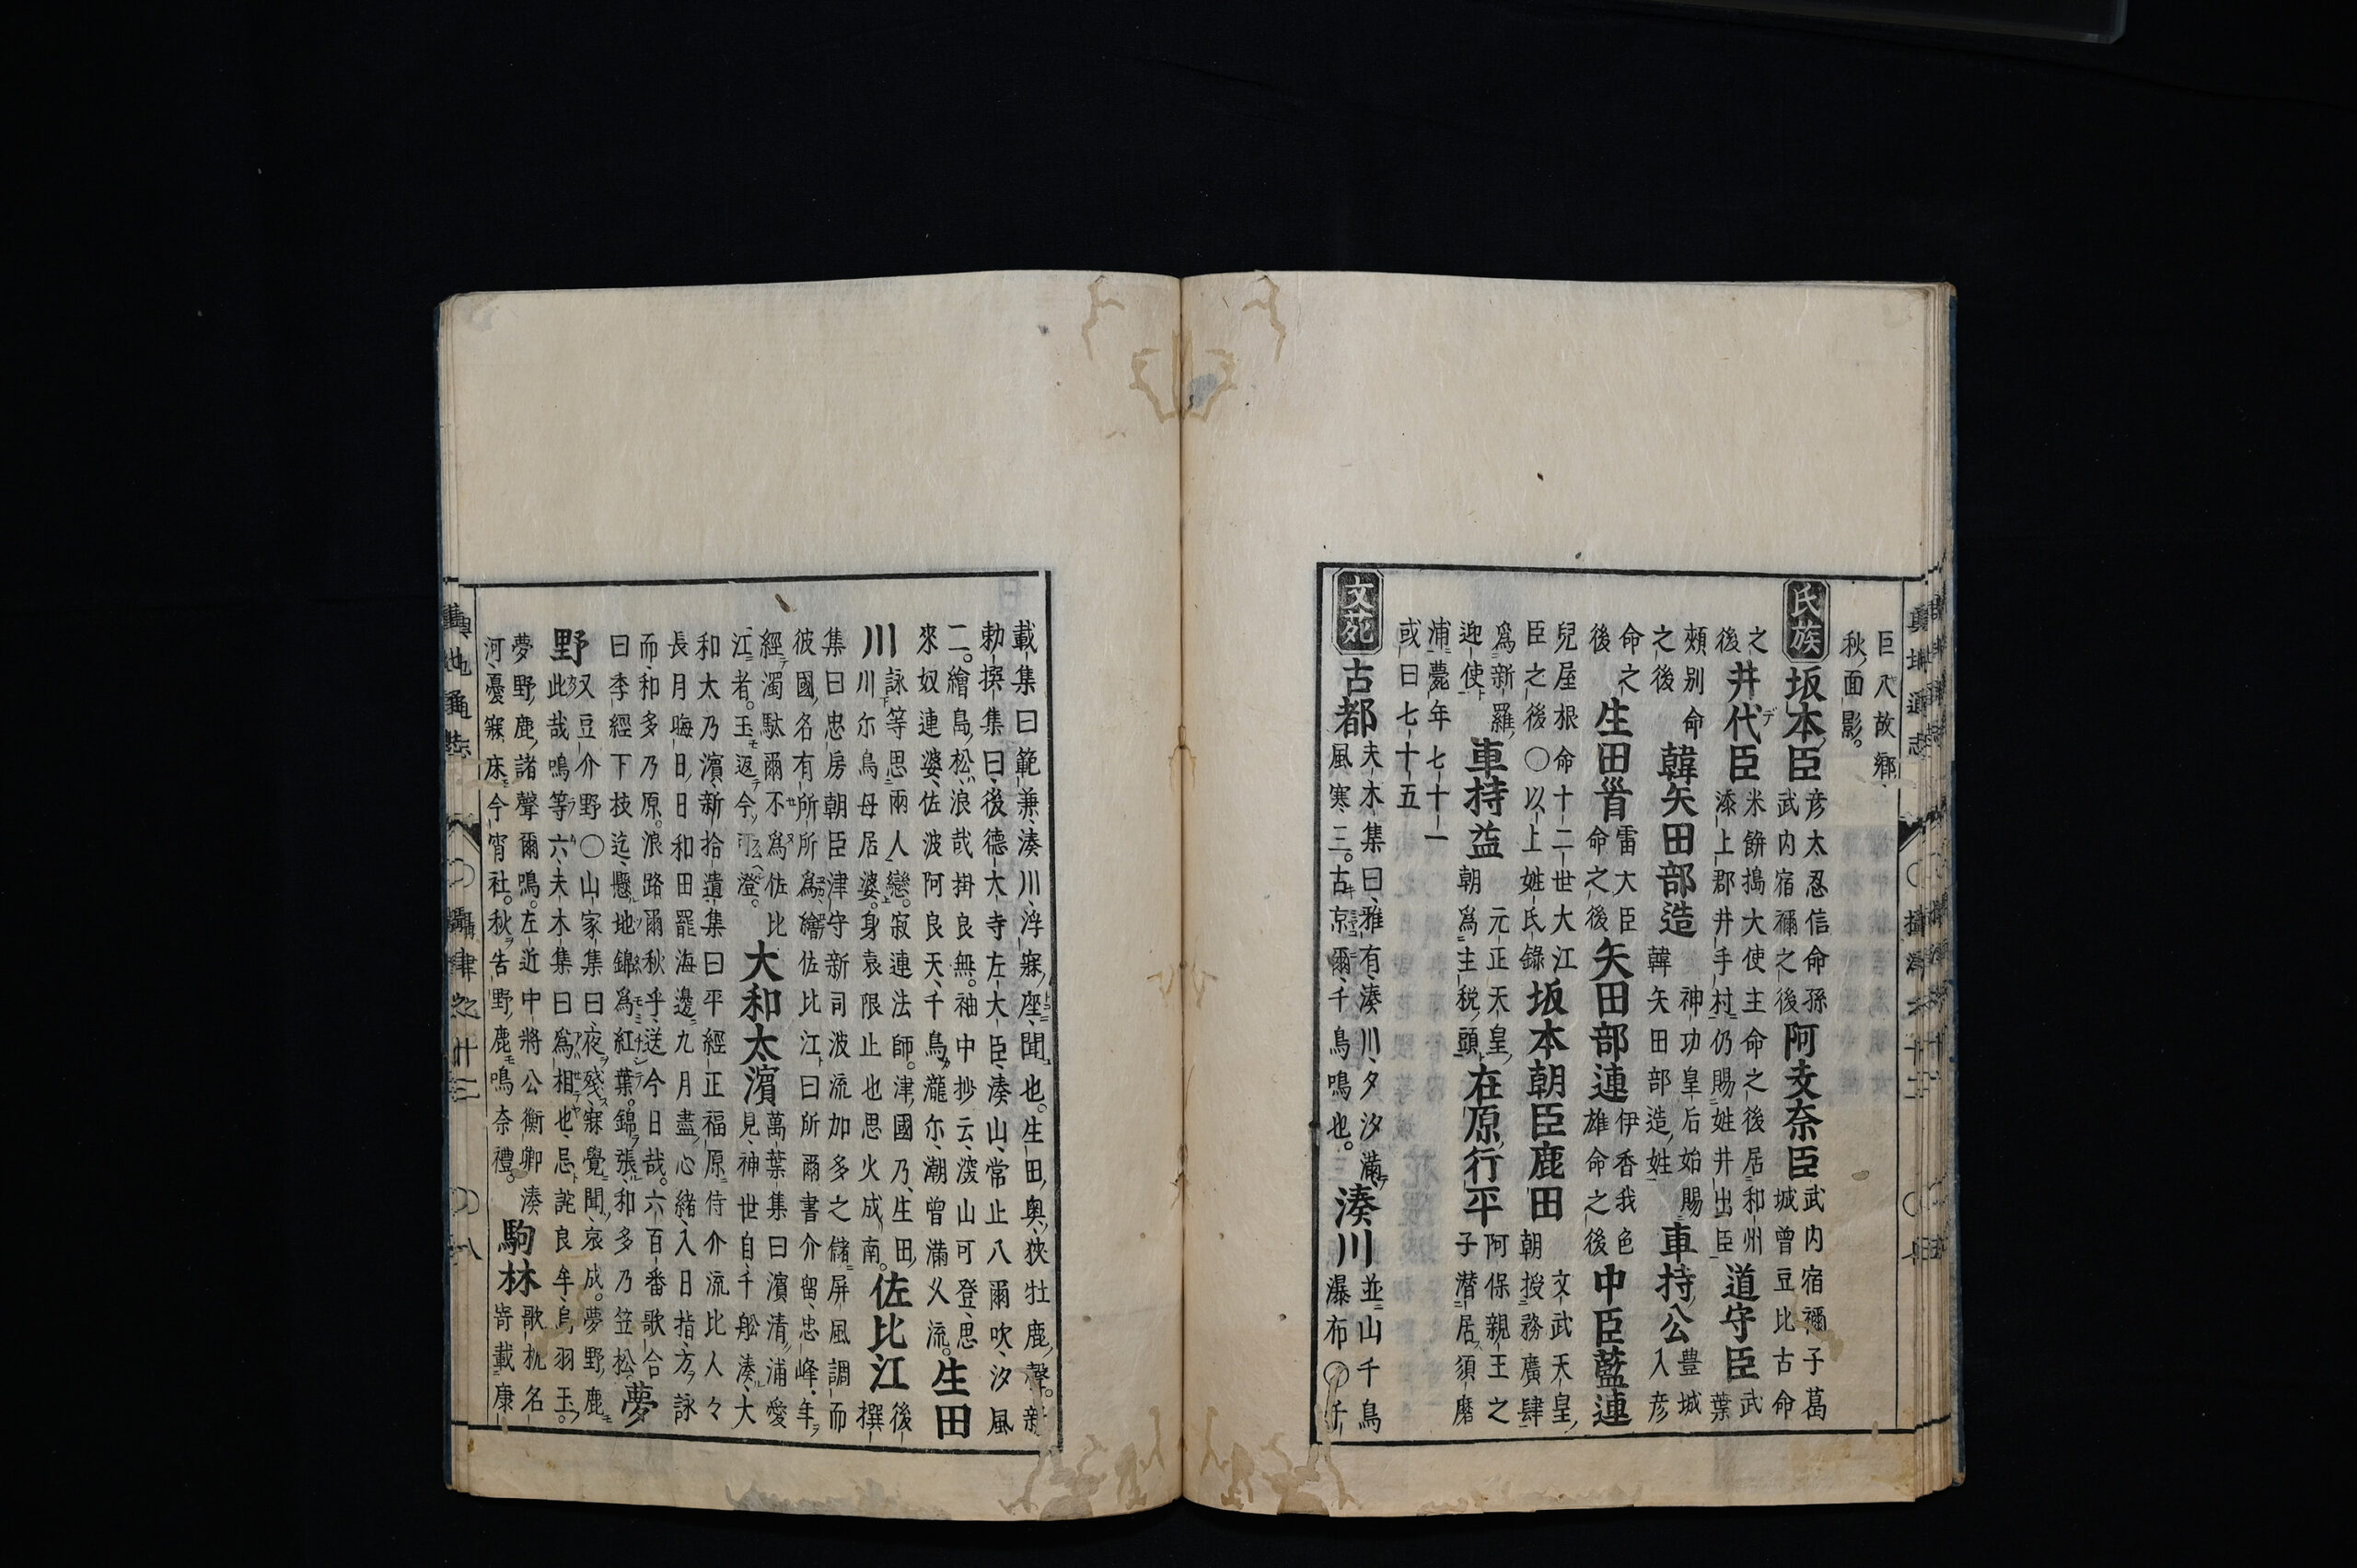 巨尺故鄉
秋面影。
氏族
坂本臣
彦太忍信命孫
武内宿禰之後
阿支奈臣
武内宿禰子葛
城曾豆比古命
之
後
井代臣
米餅搗大使主命之後居和州
添上郡井手村仍賜姓井出臣
道守臣
武
葉
頰别命
之後
韓矢田部造
神功皇后始賜
韓矢田部造姓
車持公
豊城
入彦
命之
後
生田首
雷大臣
命之後
矢田部連
伊香我色
雄命之後
中臣藍連
兒屋根命十二世大江
臣之後〇以上姓氏錄
坂本朝臣鹿田
文武天皇
朝授務廣肆
爲新羅
迎使
車持益
元正天皇
朝爲主税頭
在原行平
阿保親王之
子潜居須磨
浦薨年七十一
或曰七十五
文苑
古都
夫木集曰雅有湊川夕汐滿
風寒三。古京爾千鳥鳴也。
湊川
並山千鳥
瀑布〇千
載集曰範兼湊川浮寐座聞也。生田奥狹牡鹿聲。新
勅撰集曰後德大寺左大臣湊山常止八爾吹汐風
二。繪島松浪哉掛良無。袖中抄云湊山可登思
來奴連婆佐波阿良天千鳥瀧尓潮曾滿乂流。
生田
川
詠等思兩人戀。寂連法師。津國乃生田
川尓鳥母居婆。身哀限止也思火成南。
佐比江
後
撰
集曰忠房朝臣津守新司波流加多之儲屏風調而
彼國名有所所爲繪佐比江曰所爾書介留忠峰年
經濁駄爾不爲佐比
江者。玉返今澄。
大和太濱
萬葉集曰濱清浦愛
見神世自千舩湊大
和太乃濱新拾遺集曰平經正福原侍介流比人々
長月晦日日和田罷海邊九月盡心緒入日指方詠
而和多乃原。浪路爾秋乎送今日哉。六百番歌合
曰季經下枝迄懸地錦爲紅葉。錦張和多乃笠松
夢
野
又豆介野〇山家集曰夜殘寐覺聞哀成。夢野鹿
此哉鳴等六夫木集曰爲相也忌詫良牟烏羽玉。
夢野鹿諸聲爾鳴。左近中將公衡卿湊
河憂寐床今宵社。秋告野鹿鳴奈禮。
駒林
歌枕名
寄載康
輿地通志
〇攝津之廿三
〇八